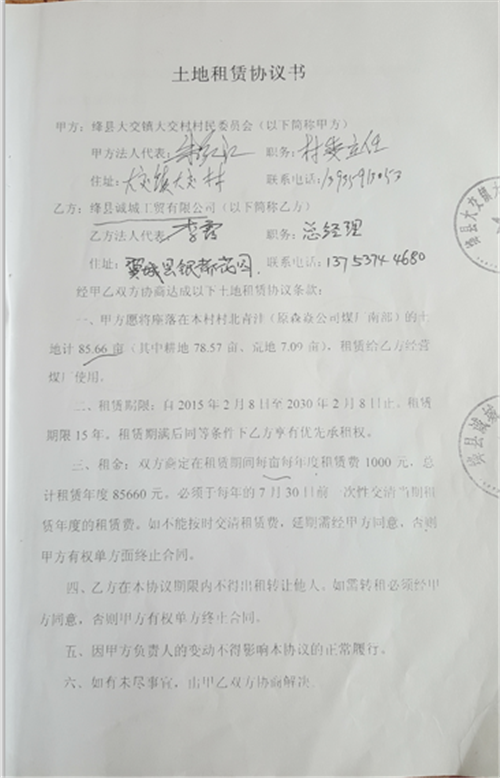 土地租赁协议书
甲方：绛县大交镇大交村村民委员会（以下简称甲方）
甲方法人代表： 职务：村委主任
住址：大交镇大交村 联系电话：13935913053
乙方：绛县诚城工贸有限公司（以下简称乙方）
乙方法人代表：李霞 职务：总经理
住址：翼城县银都花园. 联系电话：13753744680
经甲乙双方协商达成以下土地租赁协议条款：
一、甲方愿将座落在本村村北青洼（原森焱公司煤厂南部）的土
地计 85.66 亩（其中耕地 78.57 亩、荒地 7.09 亩），租赁给乙方经营
煤厂使用。
二、租赁期限：自 2015 年 2 月 8 日至 2030 年 2 月 8 日止。租赁
期限 15 年。租赁期满后同等条件下乙方享有优先承租权。
三、租金：双方商定在租赁期间每亩每年度租赁费 1000 元，总
计租赁年度 85660 元。必须于每年的 7 月 30 日前一次性交清当期租
赁年度的租赁费。如不能按时交清租赁费，延期需经甲方同意，否则
甲方有权单方面终止合同。
四、乙方在本协议期限内不得出租转让他人。如需转租必须经甲
方同意，否则甲方有权单方终止合同。
五、因甲方负责人的变动不得影响本协议的正常履行。
六、如有未尽事宜，由甲乙双方协商解决。
绛县大交镇大
绛县诚